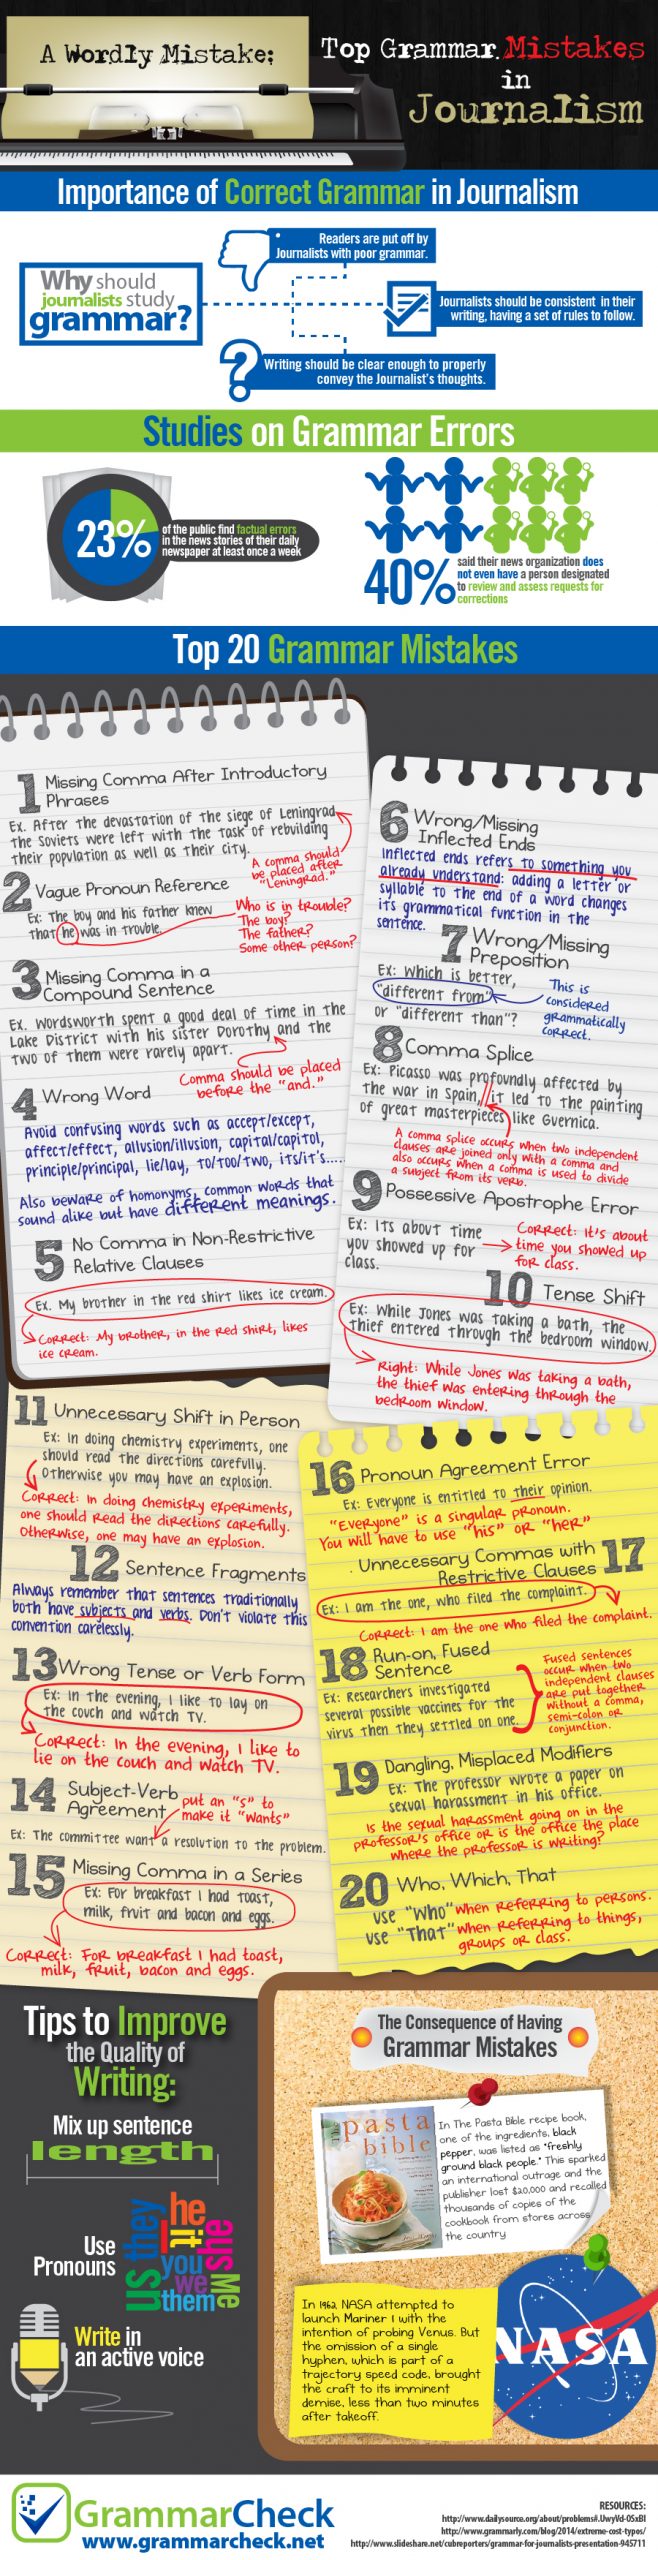 A Wordly Mistake:
Top Grammar Mistakes
in
Journalism
Importance of Correct Grammar in Journalism
Why should
journalists study
grammar?
Readers are put off by
Journalists with poor grammar.
Journalists should be consistent in their
writing, having a set of rules to follow.
Writing should be clear enough to properly
convey the Journalist's thoughts.
Studies on Grammar Errors
23%
of the public find factual errors
in the news stories of their daily
newspaper at least once a week
40%
said their news organization does
not even have a person designated
to review and assess requests for
corrections
Top 20 Grammar Mistakes
1 Missing Comma After Introductory
Phrases
Ex. After the devastation of the siege of Leningrad
the Soviets were left with the task of rebuilding
their population as well as their city.
A comma should
be placed after
"Leningrad."
2 Vague Pronoun Reference
Ex: The boy and his father knew
that he was in trouble.
Who is in trouble?
The boy?
The father?
Some other person?
3 Missing Comma in a
Compound Sentence
Ex. Wordsworth spent a good deal of time in the
Lake District with his sister Dorothy and the
two of them were rarely apart.
Comma should be placed
before the "and."
4 Wrong Word
Avoid confusing words such as accept/except,
affect/effect, allusion/illusion, capital/capitol,
principle/principal, lie/lay, to/too/two, its/it's.....
Also beware of homonyms, common words that
sound alike but have different meanings.
5 No Comma in Non-Restrictive
Relative Clauses
Ex. My brother in the red shirt likes ice cream.
Correct: My brother, in the red shirt, likes
ice cream.
6 Wrong/Missing
Inflected Ends
Inflected ends refers to something you
already understand: adding a letter or
syllable to the end of a word changes
its grammatical function in the
sentence.
7 Wrong/Missing
Preposition
Ex: Which is better,
"different from"
or "different than"?
This is
considered
grammatically
correct.
8 Comma Splice
Ex: Picasso was profoundly affected by
the war in Spain, it led to the painting
of great masterpieces like Guernica.
A comma splice occurs when two independent
clauses are joined only with a comma and
also occurs when a comma is used to divide
a subject from its verb.
9 Possessive Apostrophe Error
Ex: Its about time
you showed up for
class.
Correct: It's about
time you showed up
for class.
10 Tense Shift
Ex: While Jones was taking a bath, the
thief entered through the bedroom window.
Right: While Jones was taking a bath,
the thief was entering through the
bedroom window.
11 Unnecessary Shift in Person
Ex: In doing chemistry experiments, one
should read the directions carefully.
Otherwise you may have an explosion.
Correct: In doing chemistry experiments,
one should read the directions carefully.
Otherwise, one may have an explosion.
12 Sentence Fragments
Always remember that sentences traditionally
both have subjects and verbs. Don't violate this
convention carelessly.
13 Wrong Tense or Verb Form
Ex: In the evening, I like to lay on
the couch and watch TV.
Correct: In the evening, I like to
lie on the couch and watch TV.
14 Subject-Verb
Agreement
put an "s" to
make it "wants"
Ex: The committee want a resolution to the problem.
15 Missing Comma in a Series
Ex: For breakfast I had toast,
milk, fruit and bacon and eggs.
Correct: For breakfast I had toast,
milk, fruit, bacon and eggs.
16 Pronoun Agreement Error
Ex: Everyone is entitled to their opinion.
"Everyone" is a singular pronoun.
You will have to use "his" or "her"
Unnecessary Commas with
Restrictive Clauses 17
Ex: I am the one, who filed the complaint.
Correct: I am the one who filed the complaint.
18 Run-on, Fused
Sentence
Ex: Researchers investigated
several possible vaccines for the
virus then they settled on one.
Fused sentences
occur when two
independent clauses
are put together
without a comma,
semi-colon or
conjunction.
19 Dangling, Misplaced Modifiers
Ex: The professor wrote a paper on
sexual harassment in his office.
Is the sexual harassment going on in the
professor's office or is the office the place
where the professor is writing?
20 Who, Which, That
use "Who" when referring to persons.
use "That" when referring to things,
groups or class.
Tips to Improve
the Quality of
Writing:
Mix up sentence
length
Use
Pronouns
us they he it you we them she Me
Write in
an active voice
The Consequence of Having
Grammar Mistakes
the pasta
bible
In The Pasta Bible recipe book,
one of the ingredients, black
pepper, was listed as "freshly
ground black people." This sparked
an international outrage and the
publisher lost $20,000 and recalled
thousands of copies of the
cookbook from stores across
the country
In 1962, NASA attempted to
launch Mariner 1 with the
intention of probing Venus. But
the omission of a single
hyphen, which is part of a
trajectory speed code, brought
the craft to its imminent
demise, less than two minutes
after takeoff.
NASA
GrammarCheck
www.grammarcheck.net
RESOURCES:
http://www.dailysource.org/about/problems#.UwyVd-0SxBI
http://www.grammarly.com/blog/2014/extreme-cost-typos/
http://www.slideshare.net/cubreporters/grammar-for-journalists-presentation-945711